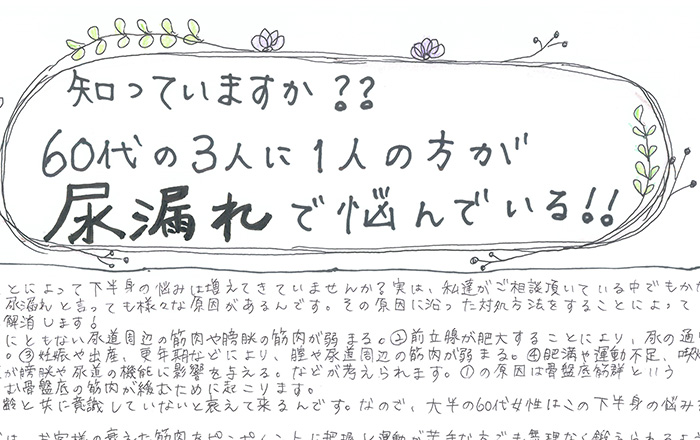 知っていますか??
60代の3人に1人の方が
尿漏れで悩んでいる!!
ことによって下半身の悩みは増えてきていませんか?実は、私達がご相談頂いている中でもかな
尿漏れと言っても様々な原因があるんです。その原因に沿った対処方法をすることによって
解消します!
にともない尿道周辺の筋肉や膀胱の筋肉が弱まる。②前立腺が肥大することにより、尿の通い
。③妊娠や出産、更年期などにより、膣や尿道周辺の筋肉が弱まる。④肥満や運動不足、喫
が膀胱や尿道の機能に影響を与える。などが考えられます。①の原因は骨盤底筋群という
む骨盤底の筋肉が緩むために起こります。
齢と共に意識していないと衰えて来るんです。なので、大半の60代女性はこの下半身の悩み
は、お客様の衰えた筋肉をピンポイントに把握し運動が苦手な方でも無理なく鍛えられるよう